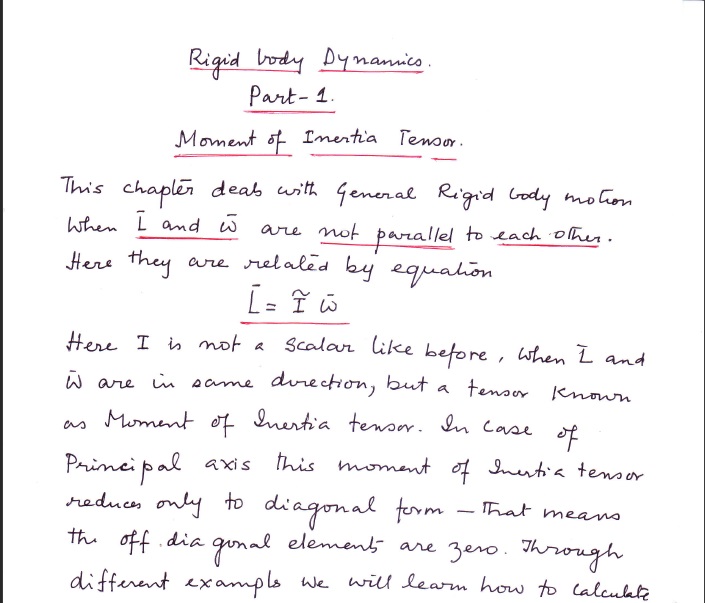 Rigid body Dynamics.
Part-1.
Moment of Inertia Tensor.
This chapter deals with General Rigid body motion
when L̄ and ω̄ are not parallel to each other.
Here they are related by equation
L̄ = Ĩ ω̄
Here I is not a scalar like before, when L̄ and
ω̄ are in same direction, but a tensor known
as Moment of Inertia tensor. In case of
Principal axis this moment of Inertia tensor
reduces only to diagonal form – That means
the off.diagonal elements are zero. Through
different examples we will learn how to calculate